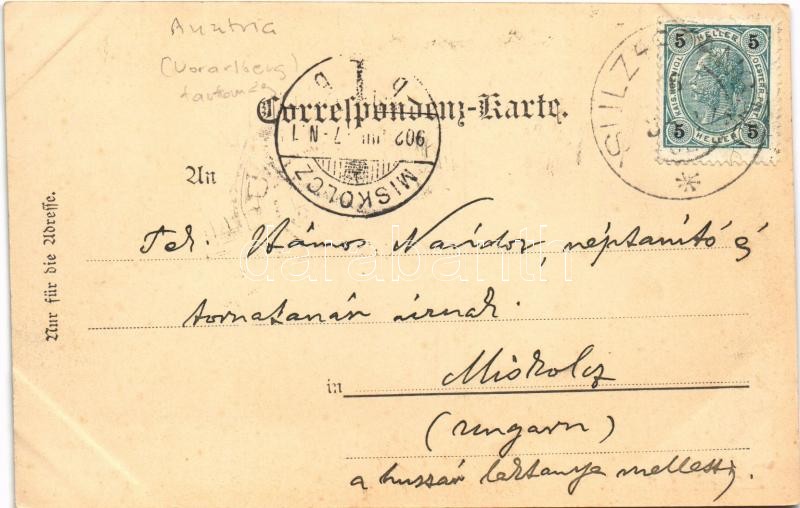 Austria
(Vorarlberg)
Correspondenz-Karte.
902
7-N 1
MISKOLCZ
SULZ
5 HELLER 5
5 HELLER 5
An
Nur für die Adresse.
Tek. Vámos Nándor, néptanító és
tornatanár úrnak.
in Miskolcz
(Ungarn)
a huszár laktanya mellett.
darabanth